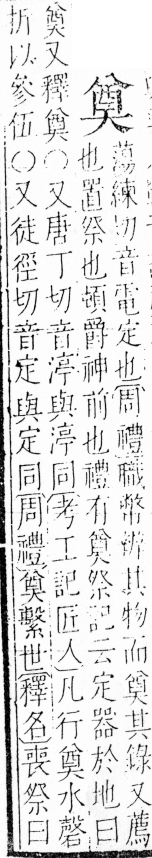 奠
蕩練切音電定也周禮職幣辨其物而奠其錄又薦
也置祭也頓爵神前也禮有奠祭記云定器於地曰
奠又釋奠○又唐丁切音渟與渟同考工記匠人凡行奠水磬
折以參伍○又徒徑切音定與定同周禮奠繫世釋名喪祭曰